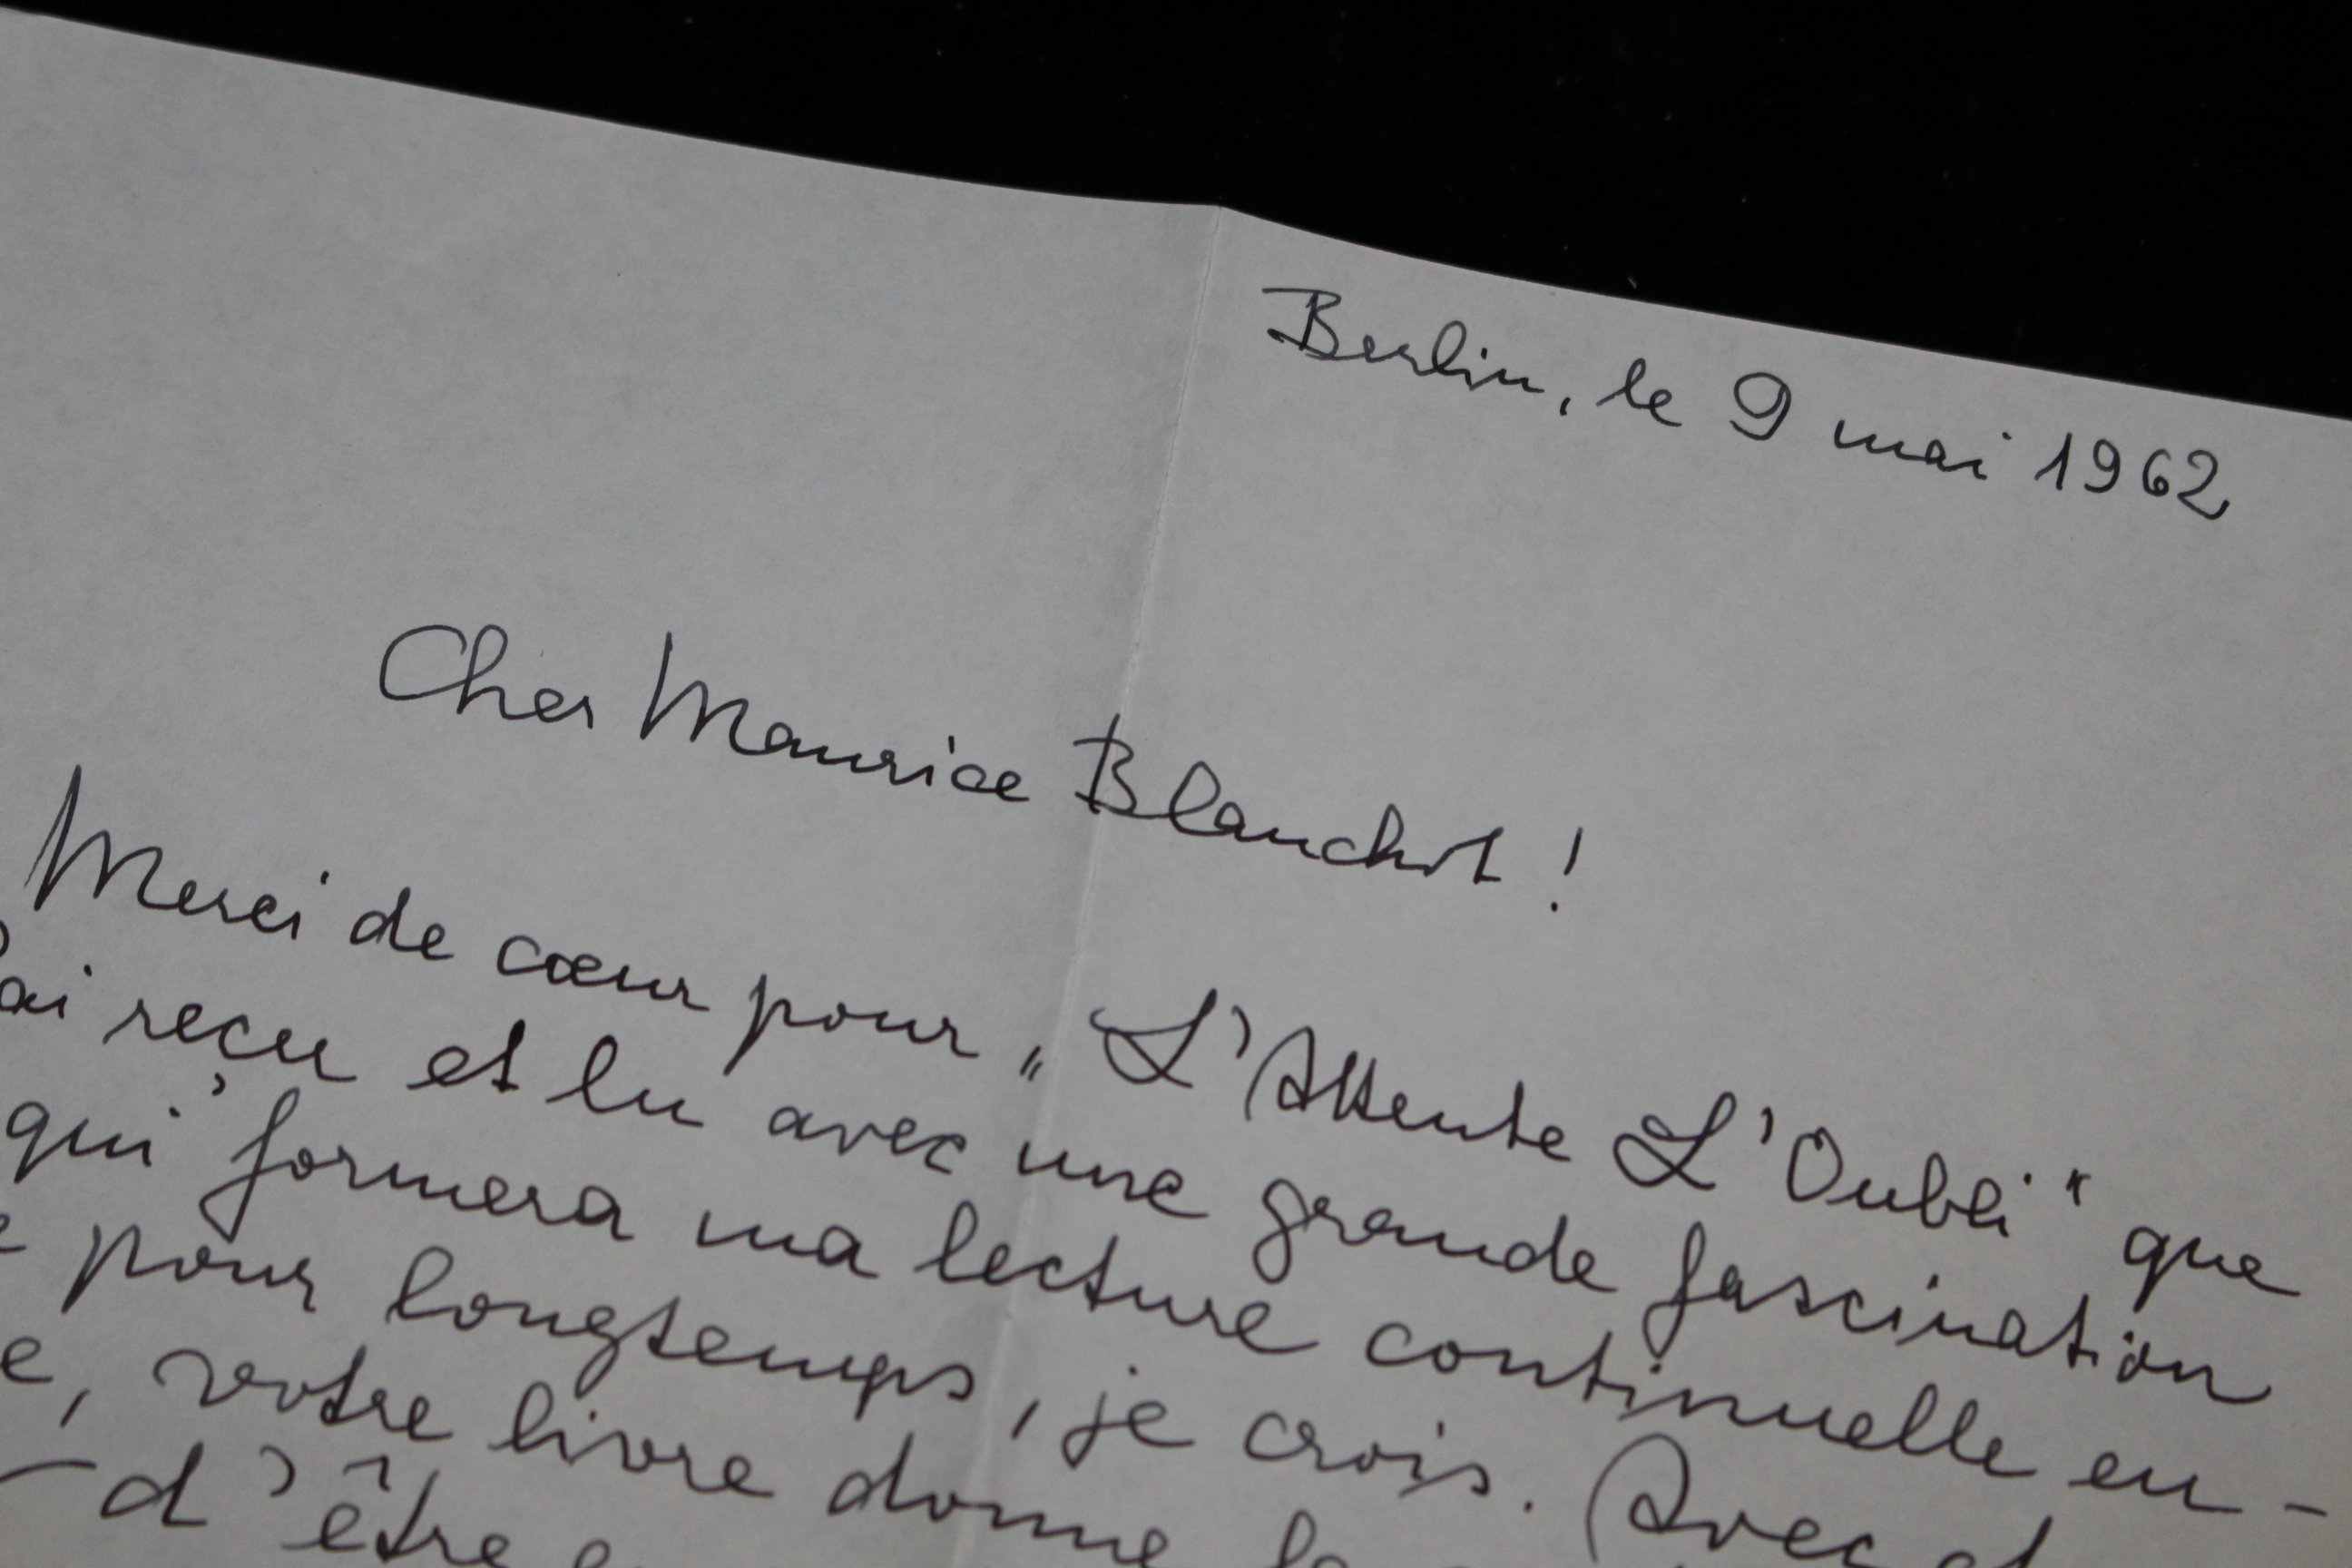 Berlin, le 9 mai 1962
Cher Maurice Blanchot !
Merci de cœur pour „L'Attente L'Oubli“ que
ai reçu et lu avec une grande fascination
qui formera ma lecture continuelle en-
e pour longtemps, je crois. Avec
e, votre livre donne
d'être